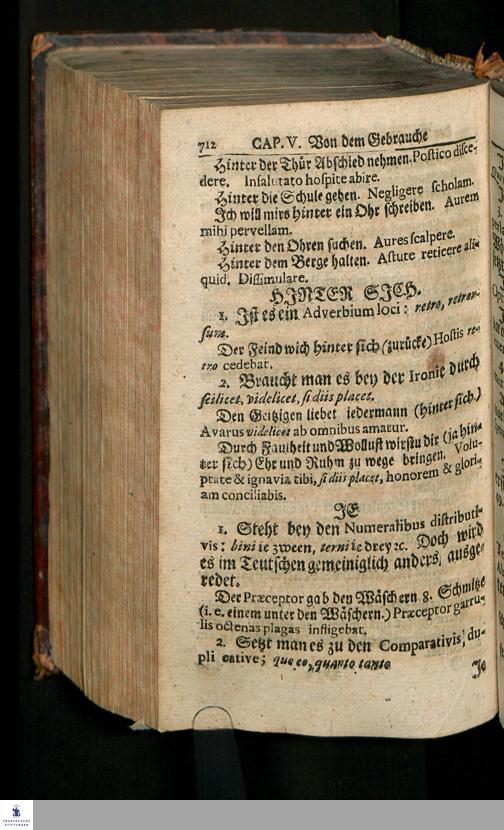 712 CAP. V. Von dem Gebrauche
Hinter der Thür Abschied nehmen. Postico disce-
dere. Insalutato hospite abire.
Hinter die Schule gehen. Negligere scholam.
Ich will mirs hinter ein Ohr schreiben. Aurem
mihi pervellam.
Hinter den Ohren suchen. Aures scalpere.
Hinter dem Berge halten. Astute reticere ali-
quid. Dissimulare.
HINTER SICH.
1. Ist es ein Adverbium loci: retro, retror-
sum.
Der Feind wich hinter sich (zurücke) Hostis re-
tro cedebat.
2. Braucht man es bey der Ironie durch
scilicet, videlicet, si diis placet.
Den Geitzigen liebet iedermann (hinter sich.)
Avarus videlicet ab omnibus amatur.
Durch Faulheit und Wollust wirstu dir (ja hin-
ter sich) Ehr und Ruhm zu wege bringen. Volu-
ptate & ignavia tibi, si diis placet, honorem & glori-
am conciliabis.
JE
1. Steht bey den Numeralibus distributi-
vis: bini ie zween, terni ie drey ꝛc. Doch wird
es im Teutschen gemeiniglich anders, ausge-
redet.
Der Præceptor gab den Wäschern 8. Schmitze
(i. e. einem unter den Wäschern.) Præceptor garru-
lis octenas plagas infligebat.
2. Setzt man es zu den Comparativis, du-
pli cative; quo eo, quanto tanto
Je
FRANCKESCHE
STIFTUNGEN